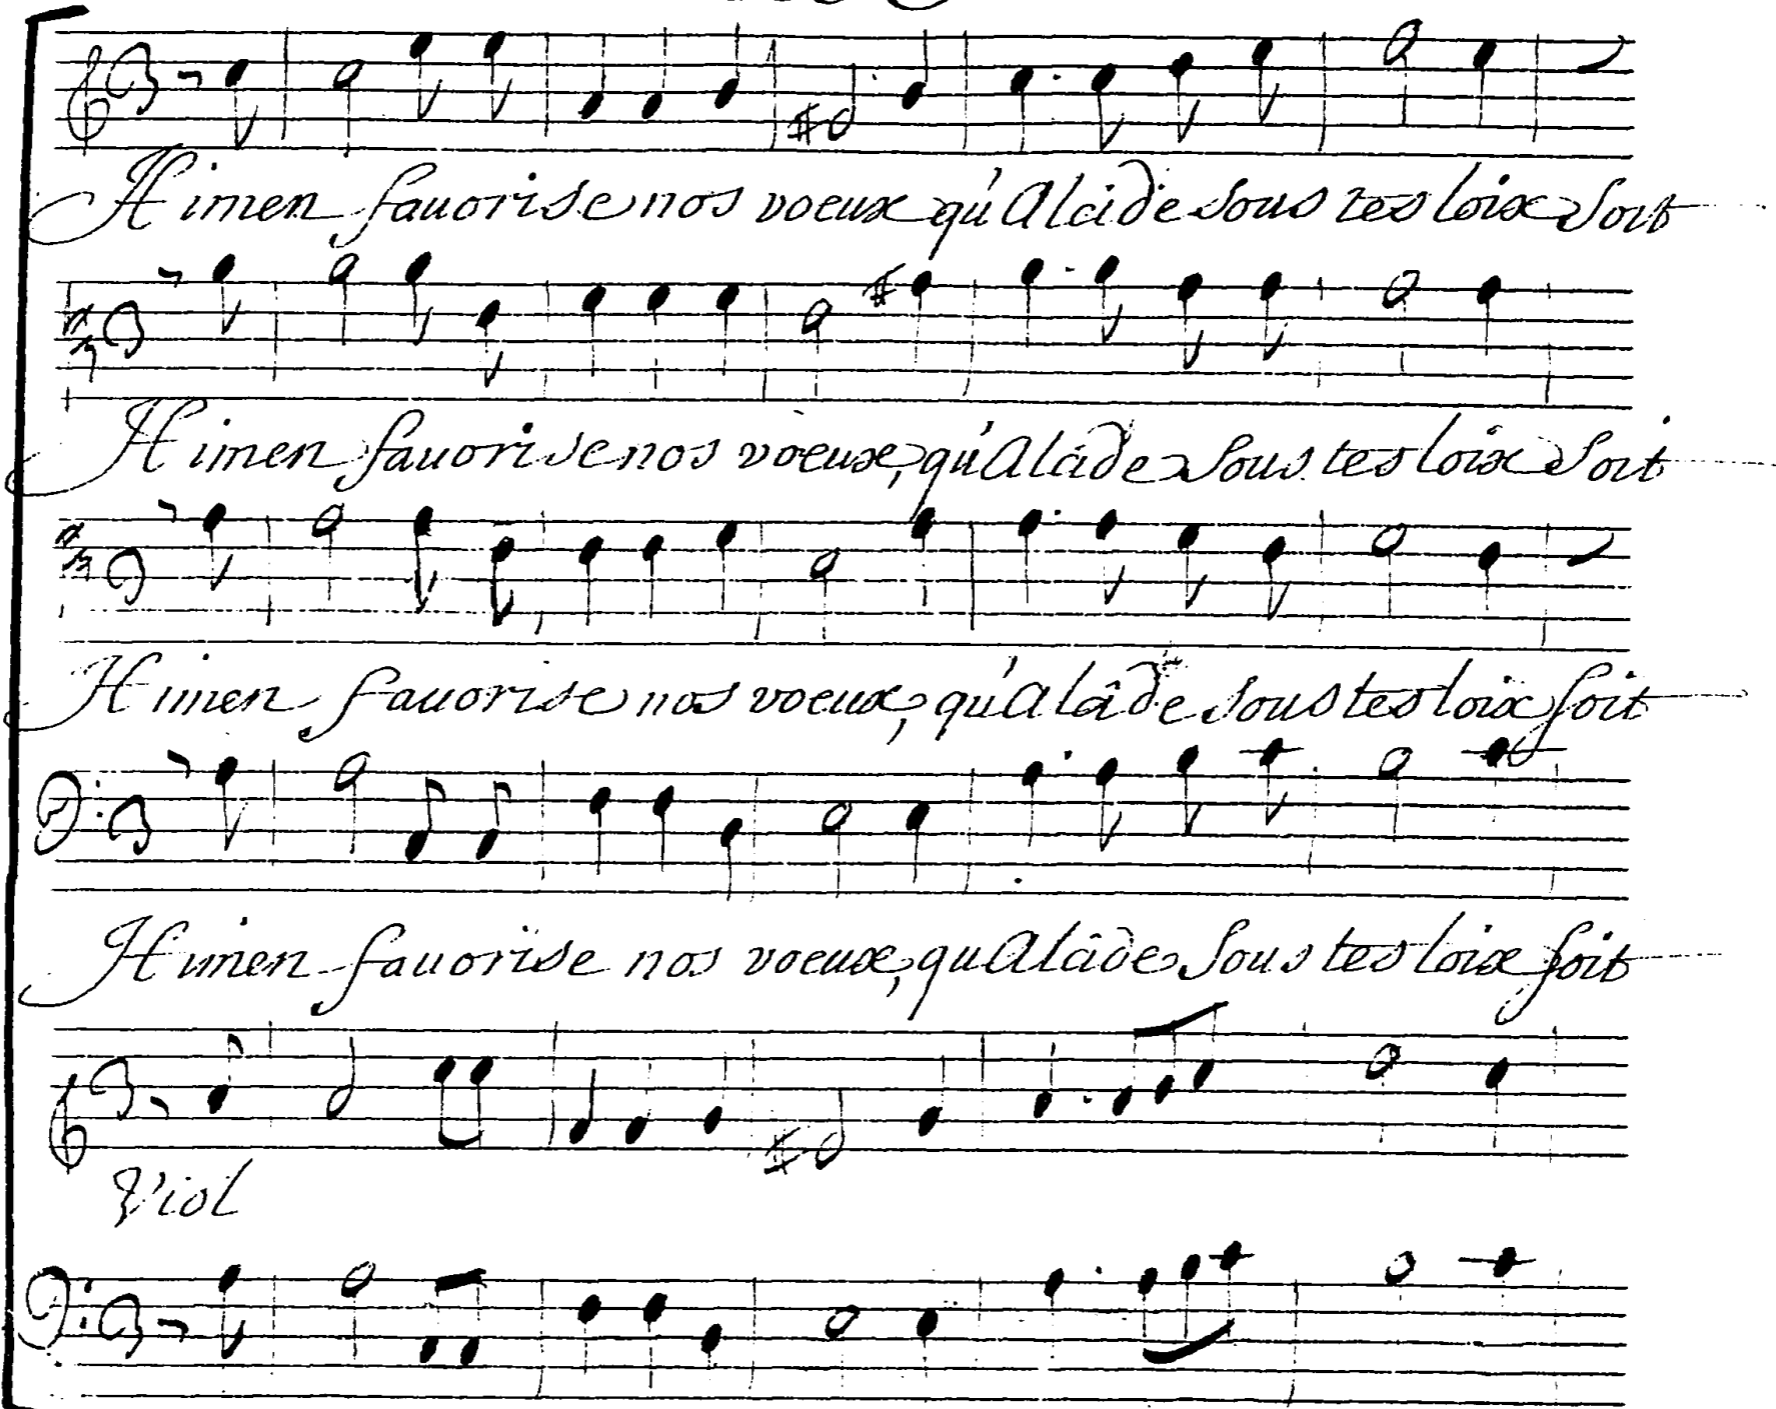 Himen fauorise nos voeux qu'Alcide sous tes loix Soit
Himen fauorise nos voeux, qu'Alcide Sous tes loix Soit
Himen fauorise nos voeux, qu'Alcide sous tes loix soit
Himen fauorise nos voeux, qu Alcide Sous tes loix soit
Viol